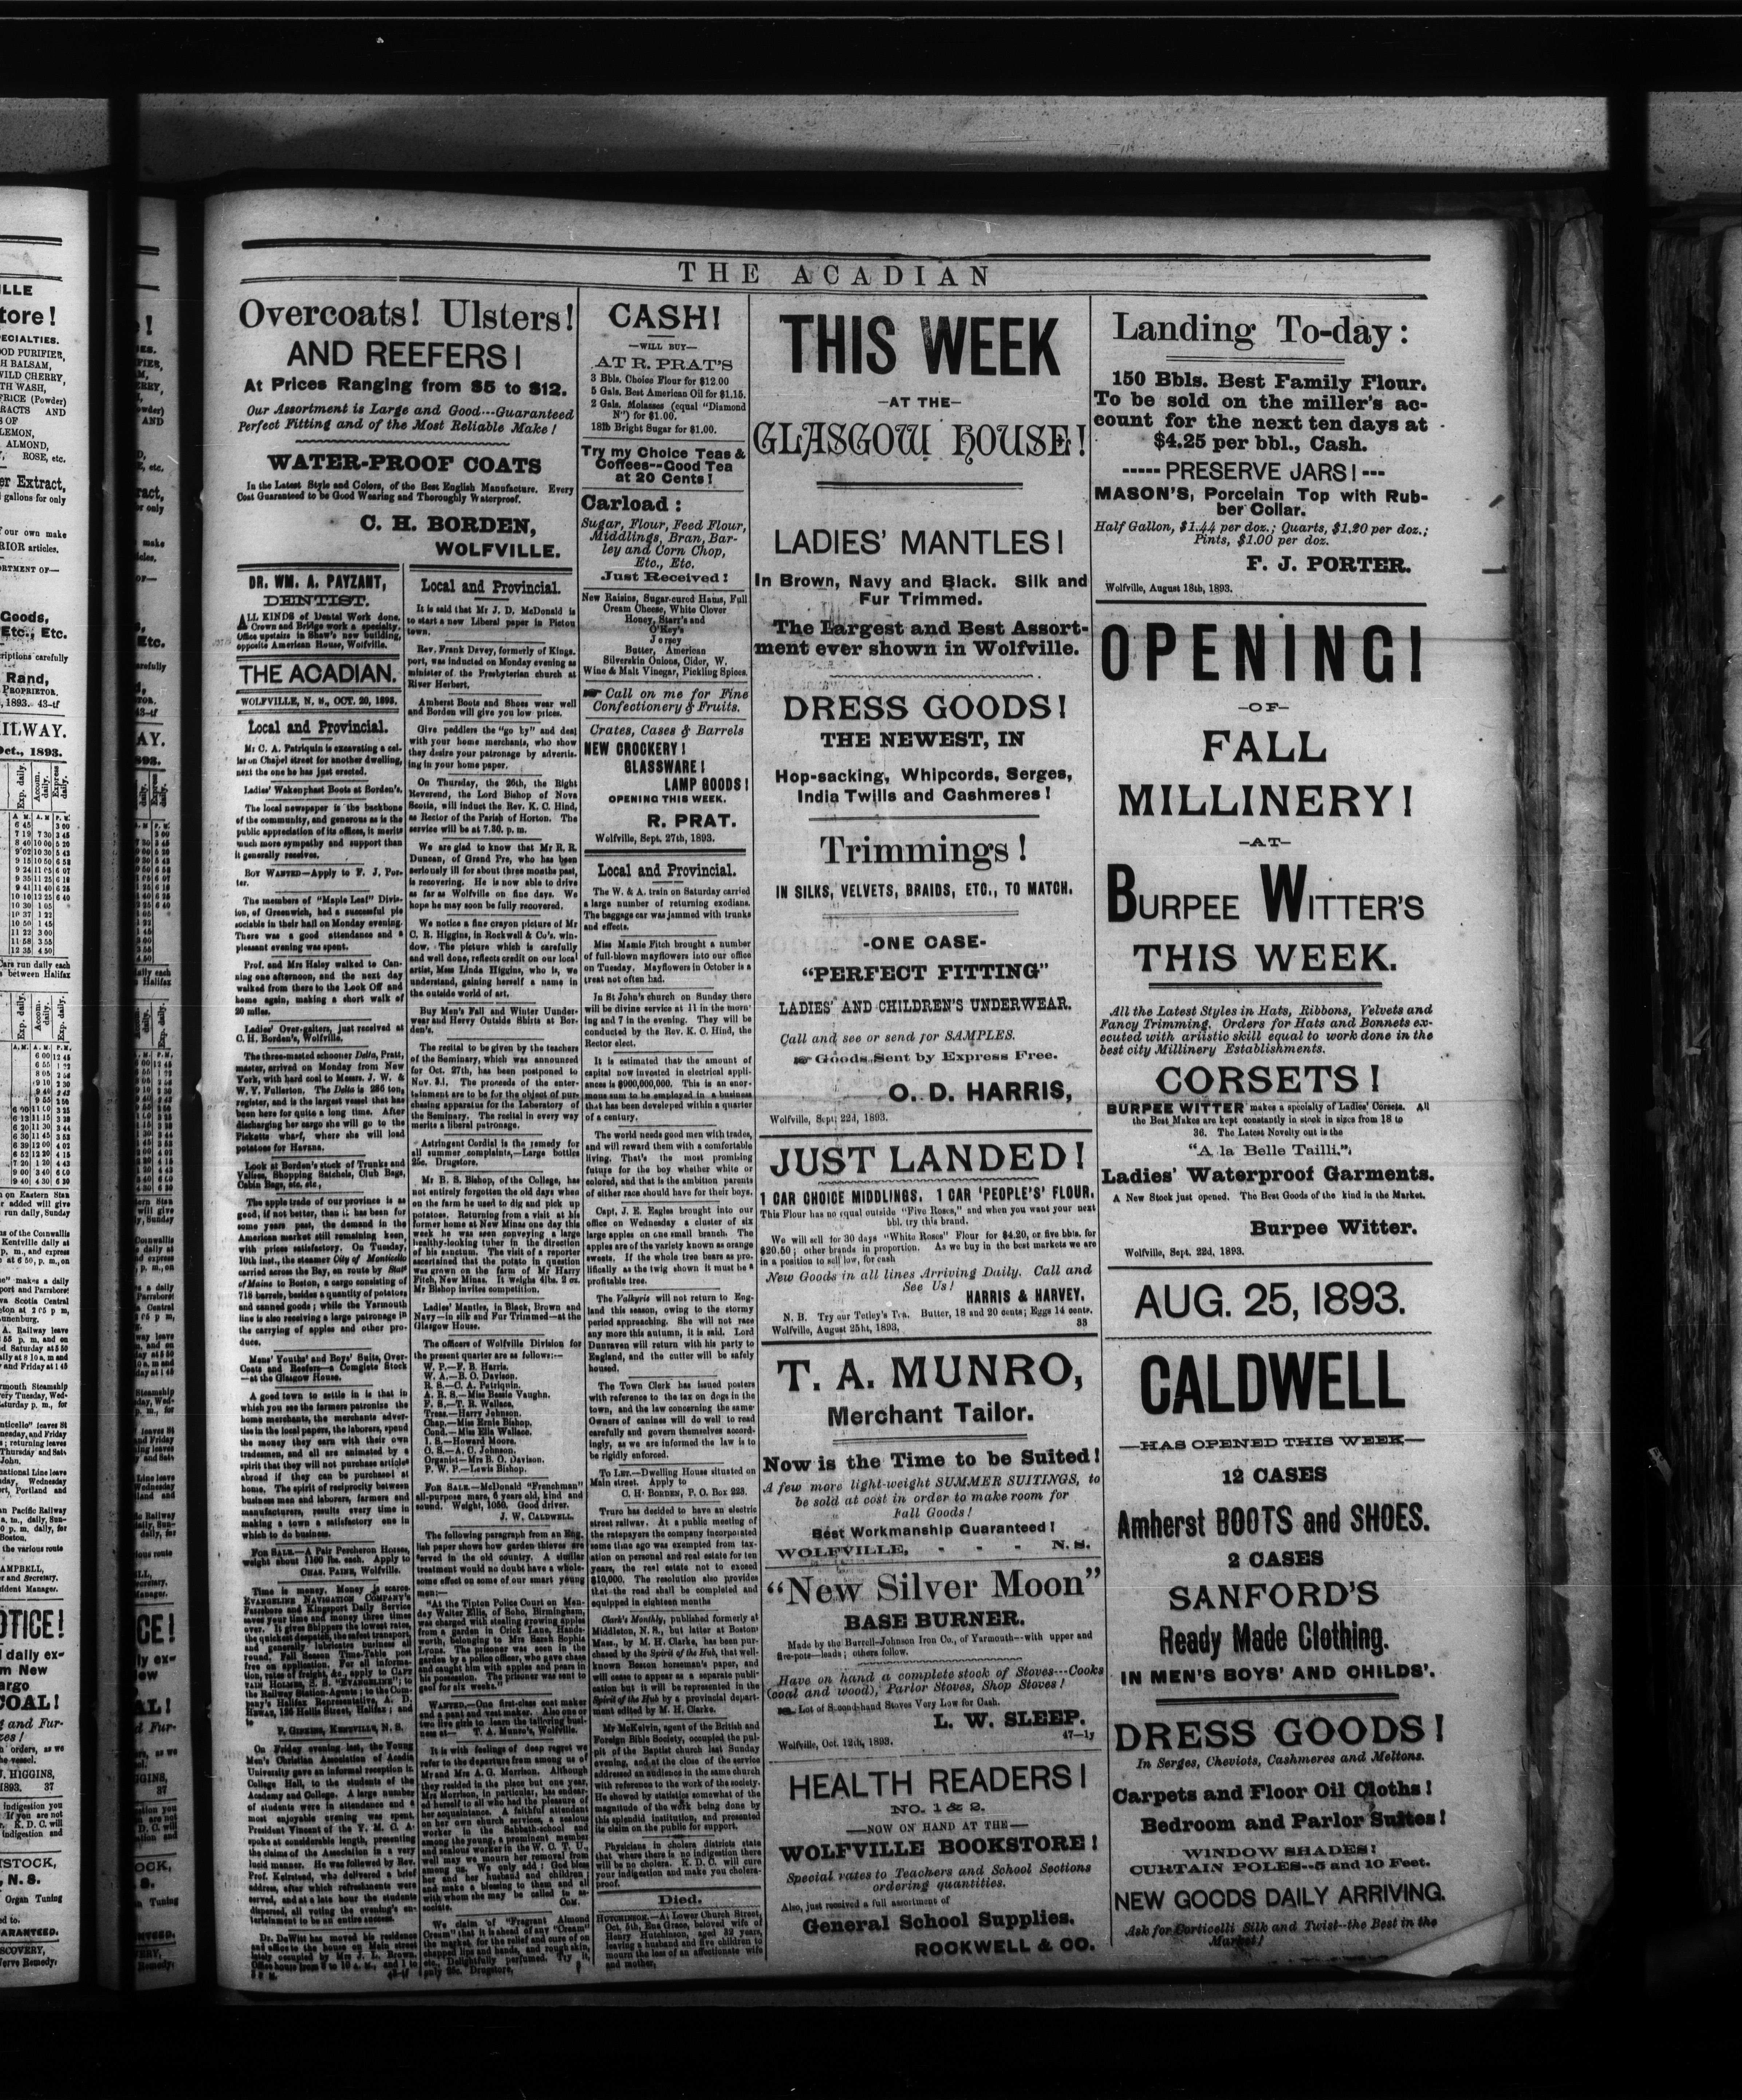 THE ACADIAN
Overcoats! Ulsters!
AND REEFERS!
At Prices Ranging from $5 to $12.
Our Assortment is Large and Good---Guaranteed
Perfect Fitting and of the Most Reliable Make!
WATER-PROOF COATS
In the Latest Style and Colors, of the Best English Manufacture. Every
Coat Guaranteed to be Good Wearing and Thoroughly Waterproof.
C. H. BORDEN,
WOLFVILLE.
DR. WM. A. PAYZANT,
DENTIST.
ALL KINDS of Dental Work done.
Crown and Bridge work a specialty.
Office upstairs in Shaw's new building,
opposite American House, Wolfville.
THE ACADIAN.
WOLFVILLE, N. S., OCT. 20, 1893.
Local and Provincial.
Mr C. A. Patriquin is excavating a cel-
lar on Chapel street for another dwelling,
next the one he has just erected.
Ladies' Wakenphast Boots at Borden's.
The local newspaper is the backbone
of the community, and generous as is the
public appreciation of its offices, it merits
much more sympathy and support than
it generally receives.
BOY WANTED—Apply to F. J. Por-
ter.
The members of "Maple Leaf" Divis-
ion, of Greenwich, had a successful pie
sociable in their hall on Monday evening.
There was a good attendance and a
pleasant evening was spent.
Prof. and Mrs Haley walked to Can-
ning one afternoon, and the next day
walked from there to the Look Off and
home again, making a short walk of
20 miles.
Ladies' Over-gaiters, just received at
C. H. Borden's, Wolfville.
The three-masted schooner Delta, Pratt,
master, arrived on Monday from New
York, with hard coal to Messrs. J. W. &
W. Y. Fullerton. The Delta is 286 tons
register, and is the largest vessel that has
been here for quite a long time. After
discharging her cargo she will go to the
Picketts wharf, where she will load
potatoes for Havana.
Look at Borden's stock of Trunks and
Valises, Shopping Satchels, Club Bags,
Cabin Bags, etc. etc.,
The apple trade of our province is as
good, if not better, than it has been for
some years past, the demand in the
American market still remaining keen,
with prices satisfactory. On Tuesday,
10th inst., the steamer City of Monticello
carried across the Bay, en route by State
of Maine to Boston, a cargo consisting of
718 barrels, besides a quantity of potatoes
and canned goods; while the Yarmouth
line is also receiving a large patronage in
the carrying of apples and other pro-
duce.
Mens' Youths' and Boys' Suits, Over-
Coats and Reefers—a Complete Stock
—at the Glasgow House.
A good town to settle in is that in
which you see the farmers patronize the
home merchants, the merchants adver-
tise in the local papers, the laborers, spend
the money they earn with their own
tradesmen, and all are animated by a
spirit that they will not purchase articles
abroad if they can be purchased at
home. The spirit of reciprocity between
business men and laborers, farmers and
manufacturers, results every time in
making a town a satisfactory one in
which to do business.
FOR SALE.—A Pair Percheron Horses,
weight about 1100 lbs. each. Apply to
CHAS. PAINE, Wolfville.
Time is money. Money is scarce.
EVANGELINE NAVIGATION COMPANY'S
Parrsboro and Kingsport Daily Service
saves your time and money three times
over. It gives Shippers the lowest rates,
the quickest despatch, the safest transport,
and generally lubricates business all
round. Fall Season Time-Table post
free on application. For all informa-
tion, rates of freight, &c., apply to CAPT
TAIN HOLMES, S. S. "EVANGELINE"; to
the Railway Station-Agents; to the Com-
pany's Halifax Representative, A. D.
HEWAT, 125 Hollis Street, Halifax; and
to
KENTVILLE, N. S.
On Friday evening last, the Young
Men's Christian Association of Acadia
University gave an informal reception in
College Hall, to the students of the
Academy and College. A large number
of students were in attendance and a
most enjoyable evening was spent.
President Vincent of the Y. M. C. A.
spoke at considerable length, presenting
the claims of the Association in a very
lucid manner. He was followed by Rev.
Prof. Keirstead, who delivered a brief
address, after which refreshments were
served, and at a late hour the students
dispersed, all voting the evening's en-
tertainment to be an entire success.
Dr. DeWitt has moved his residence
and office to the house on Main street
lately occupied by Mrs J. L. Brown.
Local and Provincial.
It is said that Mr J. D. McDonald is
to start a new Liberal paper in Pictou
town.
Rev. Frank Davey, formerly of Kings-
port, was inducted on Monday evening as
minister of the Presbyterian church at
River Herbert.
Amherst Boots and Shoes wear well
and Borden will give you low prices.
Give peddlers the "go by" and deal
with your home merchants, who show
they desire your patronage by advertis-
ing in your home paper.
On Thursday, the 26th, the Right
Reverend, the Lord Bishop of Nova
Scotia, will induct the Rev. K. C. Hind,
as Rector of the Parish of Horton. The
service will be at 7.30. p. m.
We are glad to know that Mr R. R.
Duncan, of Grand Pre, who has been
seriously ill for about three months past,
is recovering. He is now able to drive
as far as Wolfville on fine days. We
hope he may soon be fully recovered.
We notice a fine crayon picture of Mr
C. R. Higgins, in Rockwell & Co's. win-
dow. The picture which is carefully
and well done, reflects credit on our local
artist, Miss Linda Higgins, who is, we
understand, gaining herself a name in
the outside world of art.
Buy Men's Fall and Winter Uunder-
wear and Herry Outside Shirts at Bor-
den's.
The recital to be given by the teachers
of the Seminary, which was announced
for Oct. 27th, has been postponed to
Nov. 3d. The proceeds of the enter-
tainment are to be for the object of pur-
chasing apparatus for the Laboratory of
the Seminary. The recital in every way
merits a liberal patronage.
Astringent Cordial is the remedy for
all summer complaints,—Large bottles
25c. Drugstore.
Mr B. S. Bishop, of the College, has
not entirely forgotten the old days when
on the farm he used to dig and pick up
potatoes. Returning from a visit at his
former home at New Minas one day this
week he was seen conveying a large
healthy-looking tuber in the direction
of his sanctum. The visit of a reporter
ascertained that the potato in question
was grown on the farm of Mr Harry
Fitch, New Minas. It weighs 4lbs. 2 oz.
Mr Bishop invites competition.
Ladies' Mantles, in Black, Brown and
Navy—in silk and Fur Trimmed—at the
Glasgow House.
The officers of Wolfville Division for
the present quarter are as follows:—
W. P.—F. B. Harris.
W. A.—B. O. Davison.
R. S.—C. A. Patriquin.
A. R. S.—Miss Bessie Vaughn.
F. S.—T. R. Wallace.
Treas.—Harry Johnson.
Chap.—Miss Ernie Bishop.
Cond.—Miss Ella Wallace.
I. S.—Howard Moore.
O. S.—A. C. Johnson.
Organist—Mrs B. O. Davison.
P. W. P.—Lewis Bishop.
FOR SALE.—McDonald "Frenchman"
all-purpose mare, 6 years old, kind and
sound. Weight, 1050. Good driver.
J. W. CALDWELL.
The following paragraph from an Eng-
lish paper shows how garden thieves are
served in the old country. A similar
treatment would no doubt have a whole-
some effect on some of our smart young
men:—
"At the Tipton Police Court on Mon-
day Walter Ellis, of Soho, Birmingham,
was charged with stealing growing apples
from a garden in Crick Lane, Hands-
worth, belonging to Mrs Sarah Sophia
Lyons. The prisoner was seen in the
garden by a police officer, who gave chase
and caught him with apples and pears in
his possession. The prisoner was sent to
gaol for six weeks."
WANTED.—One first-class coat maker
and a pant and vest maker. Also one or
two five girls to learn the tailoring busi-
ness at— T. A. Munro's, Wolfville.
It is with feelings of deep regret we
refer to the departure from among us of
Mr and Mrs A. G. Morrison. Although
they resided in the place but one year,
Mrs Morrison, in particular, has endear-
ed herself to all who had the pleasure of
her acquaintance. A faithful attendant
on her own church services, a zealous
worker in the Sabbath-school and
among the young, a prominent member
and zealous worker in the W. C. T. U.,
well may we mourn her removal from
among us. We only add: God bless
her and her husband and children;
and make a blessing to them and all
with whom she may be called to as-
sociate. COM.
We claim of "Fragrant Almond
Cream" that it is ahead of any "Cream"
in the market, for the relief and cure of
chapped lips and hands, and rough skin,
etc., Delightfully perfumed. Try it,
only 25c. Drugstore.
CASH!
—WILL BUY—
AT R. PRAT'S
3 Bbls. Choice Flour for $12.00
5 Gals. Best American Oil for $1.15.
2 Gals. Molasses (equal "Diamond
N") for $1.00.
18lb Bright Sugar for $1.00.
Try my Choice Teas &
Coffees--Good Tea
at 20 Cents!
Carload:
Sugar, Flour, Feed Flour,
Middlings, Bran, Bar-
ley and Corn Chop,
Etc., Etc.
Just Received!
New Raisins, Sugar-cured Hams, Full
Cream Cheese, White Clover
Honey, Starr's and
O'Key's
Jersey
Butter, American
Silverskin Onions, Cider, W.
Wine & Malt Vinegar, Pickling Spices.
Call on me for Fine
Confectionery & Fruits.
Crates, Cases & Barrels
NEW CROCKERY!
GLASSWARE!
LAMP GOODS!
OPENING THIS WEEK.
R. PRAT.
Wolfville, Sept. 27th, 1893.
Local and Provincial.
The W. & A. train on Saturday carried
a large number of returning exodians.
The baggage car was jammed with trunks
and effects.
Miss Mamie Fitch brought a number
of full-blown mayflowers into our office
on Tuesday. Mayflowers in October is a
treat not often had.
In St John's church on Sunday there
will be divine service at 11 in the morn-
ing and 7 in the evening. They will be
conducted by the Rev. K. C. Hind, the
Rector elect.
It is estimated that the amount of
capital now invested in electrical appli-
ances is $900,000,000. This is an enor-
mous sum to be employed in a business
that has been developed within a quarter
of a century.
The world needs good men with trades,
and will reward them with a comfortable
living. That's the most promising
future for the boy whether white or
colored, and that is the ambition parents
of either race should have for their boys.
Capt. J. E. Eagles brought into our
office on Wednesday a cluster of six
large apples on one small branch. The
apples are of the variety known as orange
sweets. If the whole tree bears as pro-
lifically as the twig shown it must be a
profitable tree.
The Valkyrie will not return to Eng-
land this season, owing to the stormy
period approaching. She will not race
any more this autumn, it is said. Lord
Dunraven will return with his party to
England, and the cutter will be safely
housed.
The Town Clerk has issued posters
with reference to the tax on dogs in the
town, and the law concerning the same.
Owners of canines will do well to read
carefully and govern themselves accord-
ingly, as we are informed the law is to
be rigidly enforced.
TO LET.—Dwelling House situated on
Main street. Apply to
C. H. BORDEN, P. O. Box 223.
Truro has decided to have an electric
street railway. At a public meeting of
the ratepayers the company incorporated
some time ago was exempted from tax-
ation on personal and real estate for ten
years, the real estate not to exceed
$10,000. The resolution also provides
that the road shall be completed and
equipped in eighteen months
Clark's Monthly, published formerly at
Middleton, N. S., but latter at Boston
Mass., by M. H. Clarke, has been pur-
chased by the Spirit of the Hub, that well-
known Boston horseman's paper, and
will cease to appear as a separate publi-
cation but it will be represented in the
Spirit of the Hub by a provincial depart-
ment edited by M. H. Clarke.
Mr McKelvin, agent of the British and
Foreign Bible Society, occupied the pul-
pit of the Baptist church last Sunday
evening, and at the close of the service
addressed an audience in the same church
with reference to the work of the society.
He showed by statistics somewhat of the
magnitude of the work being done by
this splendid institution, and presented
its claim on the public for support.
Physicians in cholera districts state
that where there is no indigestion there
will be no cholera. K. D. C. will cure
your indigestion and make you cholera-
proof.
Died.
HUTCHINSON.—At Lower Church Street,
Oct. 5th, Ena Grace, beloved wife of
Henry Hutchinson, aged 32 years,
leaving a husband and five children to
mourn the loss of an affectionate wife
and mother.
THIS WEEK
—AT THE—
GLASGOW HOUSE!
LADIES' MANTLES!
In Brown, Navy and Black. Silk and
Fur Trimmed.
The Largest and Best Assort-
ment ever shown in Wolfville.
DRESS GOODS!
THE NEWEST, IN
Hop-sacking, Whipcords, Serges,
India Twills and Cashmeres!
Trimmings!
IN SILKS, VELVETS, BRAIDS, ETC., TO MATCH.
-ONE CASE-
"PERFECT FITTING"
LADIES' AND CHILDREN'S UNDERWEAR.
Call and see or send for SAMPLES.
Goods Sent by Express Free.
O. D. HARRIS,
Wolfville, Sept. 22d, 1893.
JUST LANDED!
1 CAR CHOICE MIDDLINGS. 1 CAR 'PEOPLE'S' FLOUR.
This Flour has no equal outside "Five Roses," and when you want your next
bbl. try this brand.
We will sell for 30 days "White Roses" Flour for $4.20, or five bbls. for
$20.50; other brands in proportion. As we buy in the best markets we are
in a position to sell low, for cash
New Goods in all lines Arriving Daily. Call and
See Us!
HARRIS & HARVEY.
N. B. Try our Tetley's Tea. Butter, 18 and 20 cents; Eggs 14 cents.
Wolfville, August 25ht, 1893. 33
T. A. MUNRO,
Merchant Tailor.
Now is the Time to be Suited!
A few more light-weight SUMMER SUITINGS, to
be sold at cost in order to make room for
Fall Goods!
Best Workmanship Guaranteed!
WOLFVILLE, - - - N. S.
"New Silver Moon"
BASE BURNER.
Made by the Burrell-Johnson Iron Co., of Yarmouth--with upper and
fire-pots--leads; others follow.
Have on hand a complete stock of Stoves---Cooks
(coal and wood), Parlor Stoves, Shop Stoves!
Lot of Second-hand Stoves Very Low for Cash.
L. W. SLEEP.
Wolfville, Oct. 12th, 1893. 47—1y
HEALTH READERS!
NO. 1 & 2.
—NOW ON HAND AT THE—
WOLFVILLE BOOKSTORE!
Special rates to Teachers and School Sections
ordering quantities.
Also, just received a full assortment of
General School Supplies.
ROCKWELL & CO.
Landing To-day:
150 Bbls. Best Family Flour.
To be sold on the miller's ac-
count for the next ten days at
$4.25 per bbl., Cash.
----- PRESERVE JARS! ---
MASON'S, Porcelain Top with Rub-
ber Collar.
Half Gallon, $1.44 per doz.; Quarts, $1.20 per doz.;
Pints, $1.00 per doz.
F. J. PORTER.
Wolfville, August 18th, 1893.
OPENING!
—OF—
FALL
MILLINERY!
—AT—
BURPEE WITTER'S
THIS WEEK.
All the Latest Styles in Hats, Ribbons, Velvets and
Fancy Trimming. Orders for Hats and Bonnets ex-
ecuted with artistic skill equal to work done in the
best city Millinery Establishments.
CORSETS!
BURPEE WITTER makes a specialty of Ladies' Corsets. All
the Best Makes are kept constantly in stock in sizes from 18 to
36. The Latest Novelty out is the
"A la Belle Tailli."
Ladies' Waterproof Garments.
A New Stock just opened. The Best Goods of the kind in the Market.
Burpee Witter.
Wolfville, Sept. 22d, 1893.
AUG. 25, 1893.
CALDWELL
—HAS OPENED THIS WEEK—
12 CASES
Amherst BOOTS and SHOES.
2 CASES
SANFORD'S
Ready Made Clothing.
IN MEN'S BOYS' AND CHILDS'.
DRESS GOODS!
In Serges, Cheviots, Cashmeres and Meltons.
Carpets and Floor Oil Cloths!
Bedroom and Parlor Suites!
WINDOW SHADES!
CURTAIN POLES--5 and 10 Feet.
NEW GOODS DAILY ARRIVING.
Ask for Corticelli Silk and Twist--the Best in the
Market!